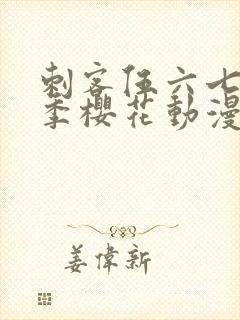 刺客伍六七
季櫻花動漫
姜偉新